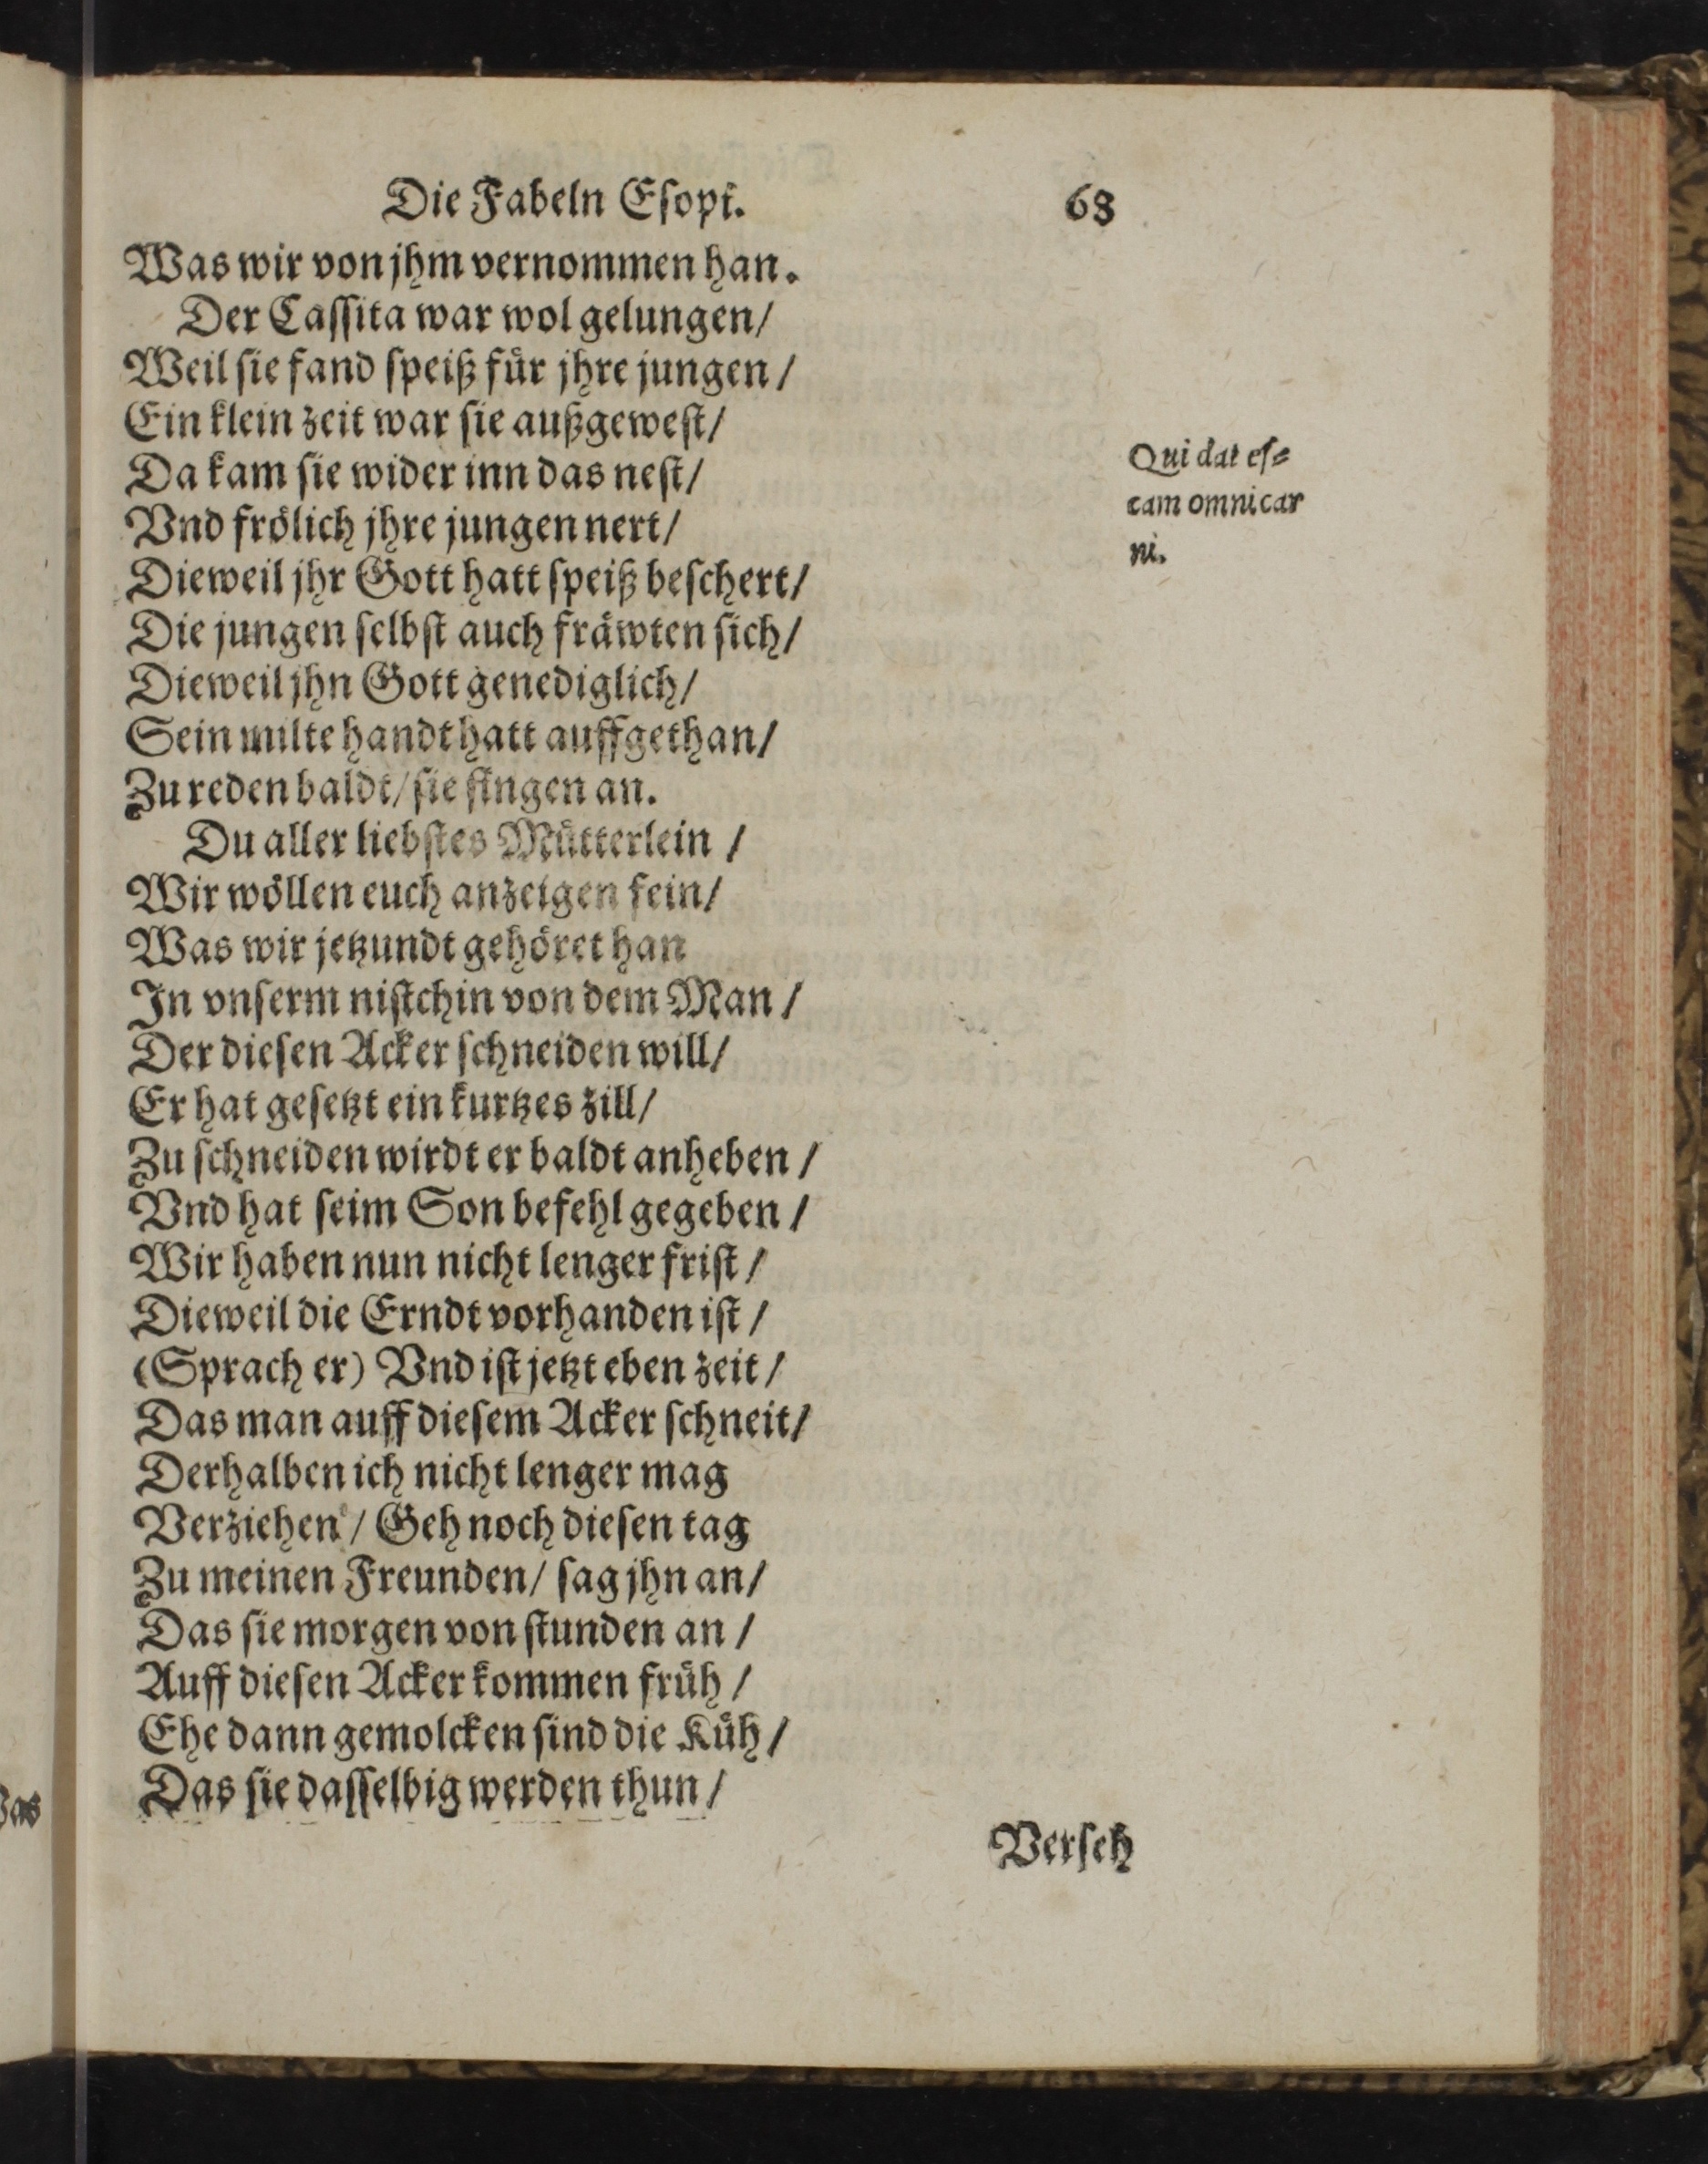 Die Fabeln Esopi. 63
Was wir von jhm vernommen han.
Der Cassita war wol gelungen/
Weil sie fand speiß für jhre jungen/
Ein klein zeit war sie außgewest/
Da kam sie wider inn das nest/
Vnd frölich jhre jungen nert/
Dieweil jhr Gott hatt speiß beschert/
Die jungen selbst auch fräwten sich/
Dieweil jhn Gott genediglich/
Sein milte handt hatt auffgethan/
Zu reden baldt/ sie fingen an.
Du aller liebstes Mütterlein /
Wir wöllen euch anzeigen fein/
Was wir jetzundt gehöret han
In vnserm nistchin von dem Man /
Der diesen Acker schneiden will/
Er hat gesetzt ein kurtzes zill/
Zu schneiden wirdt er baldt anheben /
Vnd hat seim Son befehl gegeben /
Wir haben nun nicht lenger frist /
Dieweil die Erndt vorhanden ist /
(Sprach er) Vnd ist jetzt eben zeit /
Das man auff diesem Acker schneit/
Derhalben ich nicht lenger mag
Verziehen / Geh noch diesen tag
Zu meinen Freunden/ sag jhn an/
Das sie morgen von stunden an /
Auff diesen Acker kommen früh /
Ehe dann gemolcken sind die Küh /
Das sie dasselbig werden thun /
Qui dat es=
cam omni car
ni.
Verseh